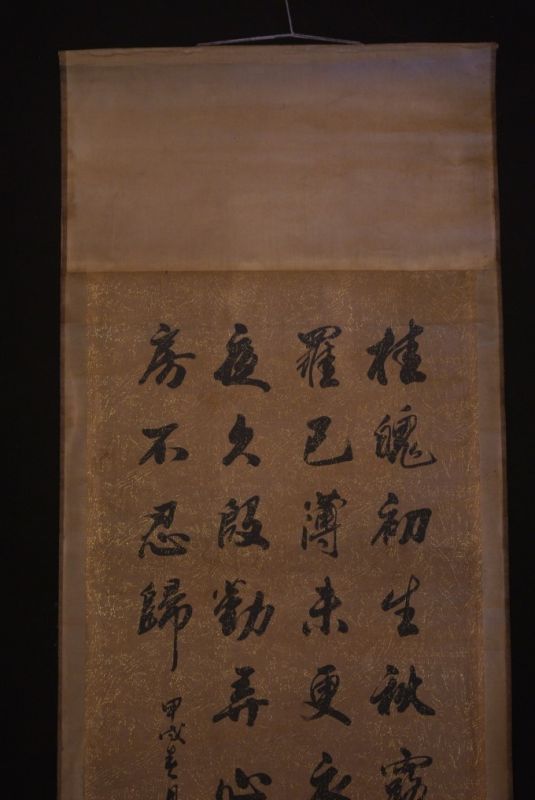 桂魄初生秋露
羅已薄未更衣
夜久殷勤弄心
房不忍歸
甲戌春月